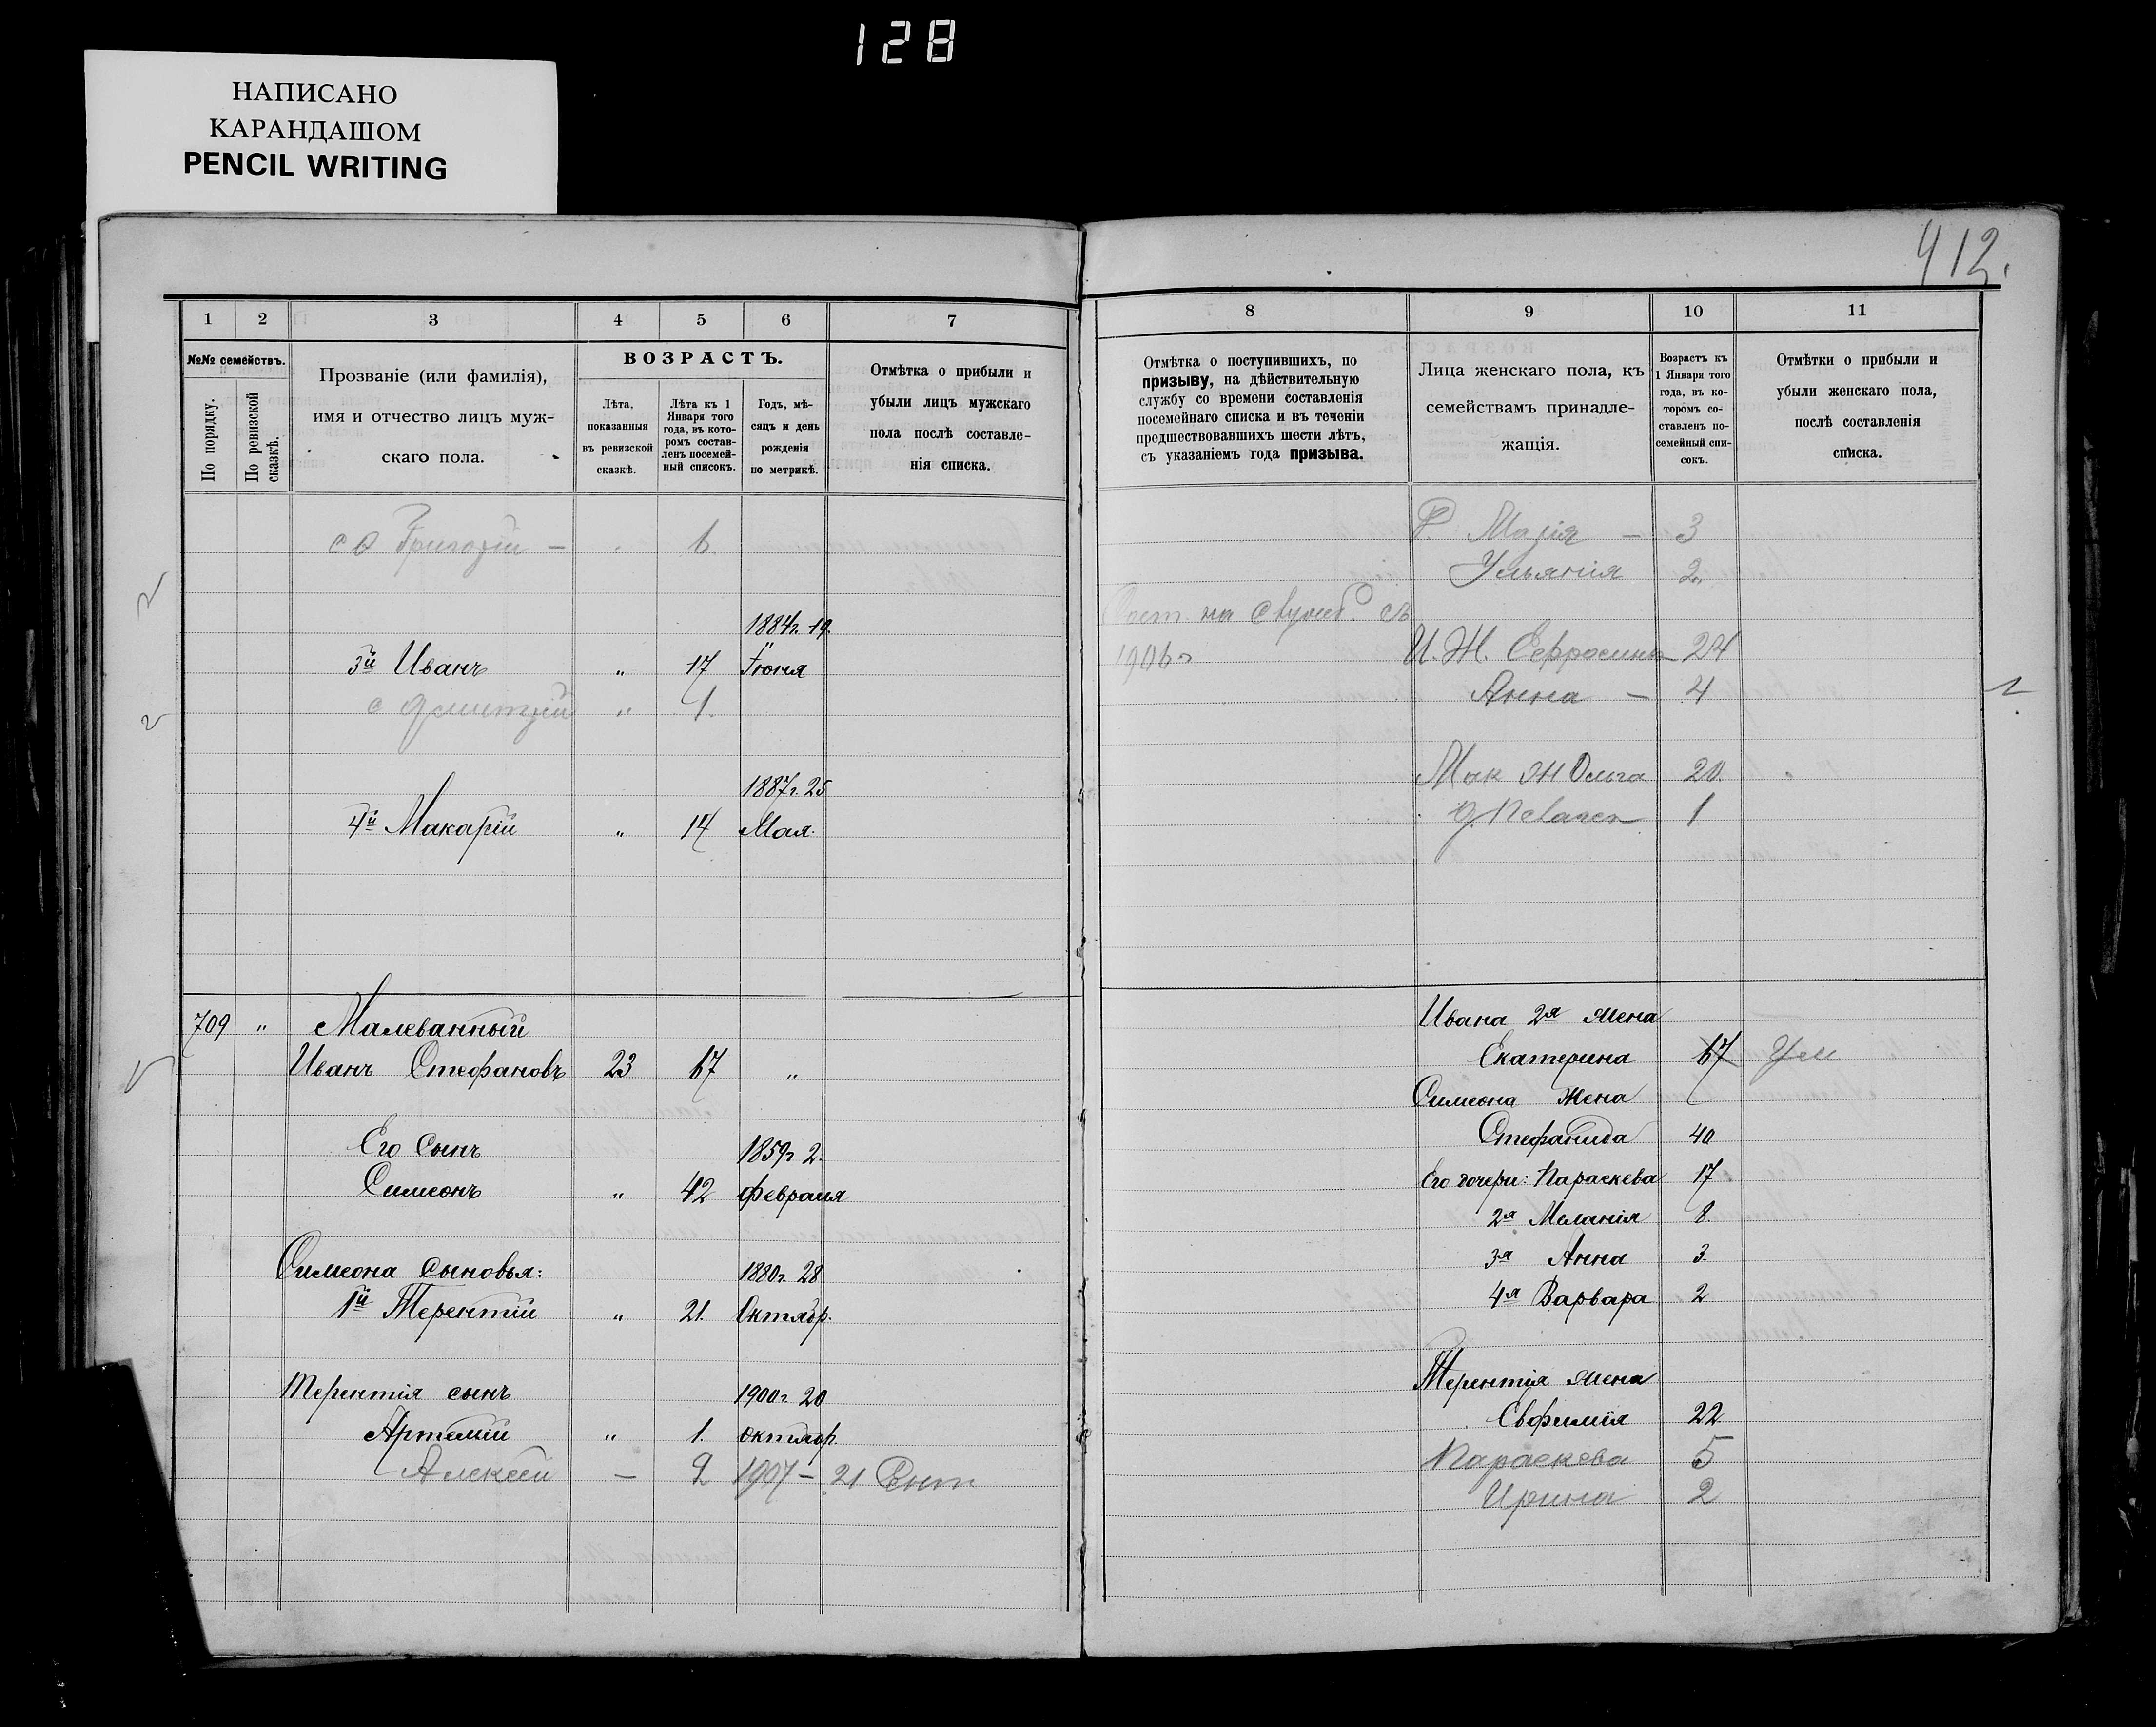 128
НАПИСАНО
КАРАНДАШОМ
PENCIL WRITING
412.
1 2 3 4 5 6 7
№№ семействъ.
По порядку.
По ревизской сказкѣ.
Прозваніе (или фамилія),
имя и отчество лицъ муж-
скаго пола.
ВОЗРАСТЪ.
Лѣта,
показанныя
въ ревизской
сказкѣ.
Лѣта къ 1
Января того
года, въ кото-
ромъ состав-
ленъ посемей-
ный списокъ.
Годъ, мѣ-
сяцъ и день
рожденія
по метрикѣ.
Отмѣтка о прибыли и
убыли лицъ мужскаго
пола послѣ составле-
нія списка.
Григорій — 6.
1884г. 19.
3й Иванъ " 17 Іюня
с Дмитрій " 1.
1887г. 25
4й Макарій " 14 Мая.
709 " Малеванный
Иванъ Стефановъ 23 67 "
Его Сынъ 1859г 2.
Симеонъ " 42 февраля
Симеона сыновья: 1880г. 28
1й Терентій " 21. Октябр.
Терентія сынъ 1900г. 20
Артемій " 1. октябр.
Алексей — 2 1907 — 21
8 9 10 11
Отмѣтка о поступившихъ, по
призыву, на дѣйствительную
службу со времени составленія
посемейнаго списка и въ теченіи
предшествовавшихъ шести лѣтъ,
съ указаніемъ года призыва.
Лица женскаго пола, къ
семействамъ принадле-
жащія.
Возрастъ къ
1 Января того
года, въ ко-
торомъ со-
ставленъ по-
семейный спи-
сокъ.
Отмѣтки о прибыли и
убыли женскаго пола,
послѣ составленія
списка.
Марія — 3
Ульянія 2
на съ
1906г И. Ж. Ефросинья 24
Анна — 4
Мак Ж Ольга 20.
1
Ивана 2я жена
Екатерина 67 Ум
Симеона Жена
Стефанида 40
Его дочери: Параскева 17
2я Меланія 8.
3я Анна 3.
4я Варвара 2
Терентія жена
Евфимія 22
Параскева 5
Ирина 2